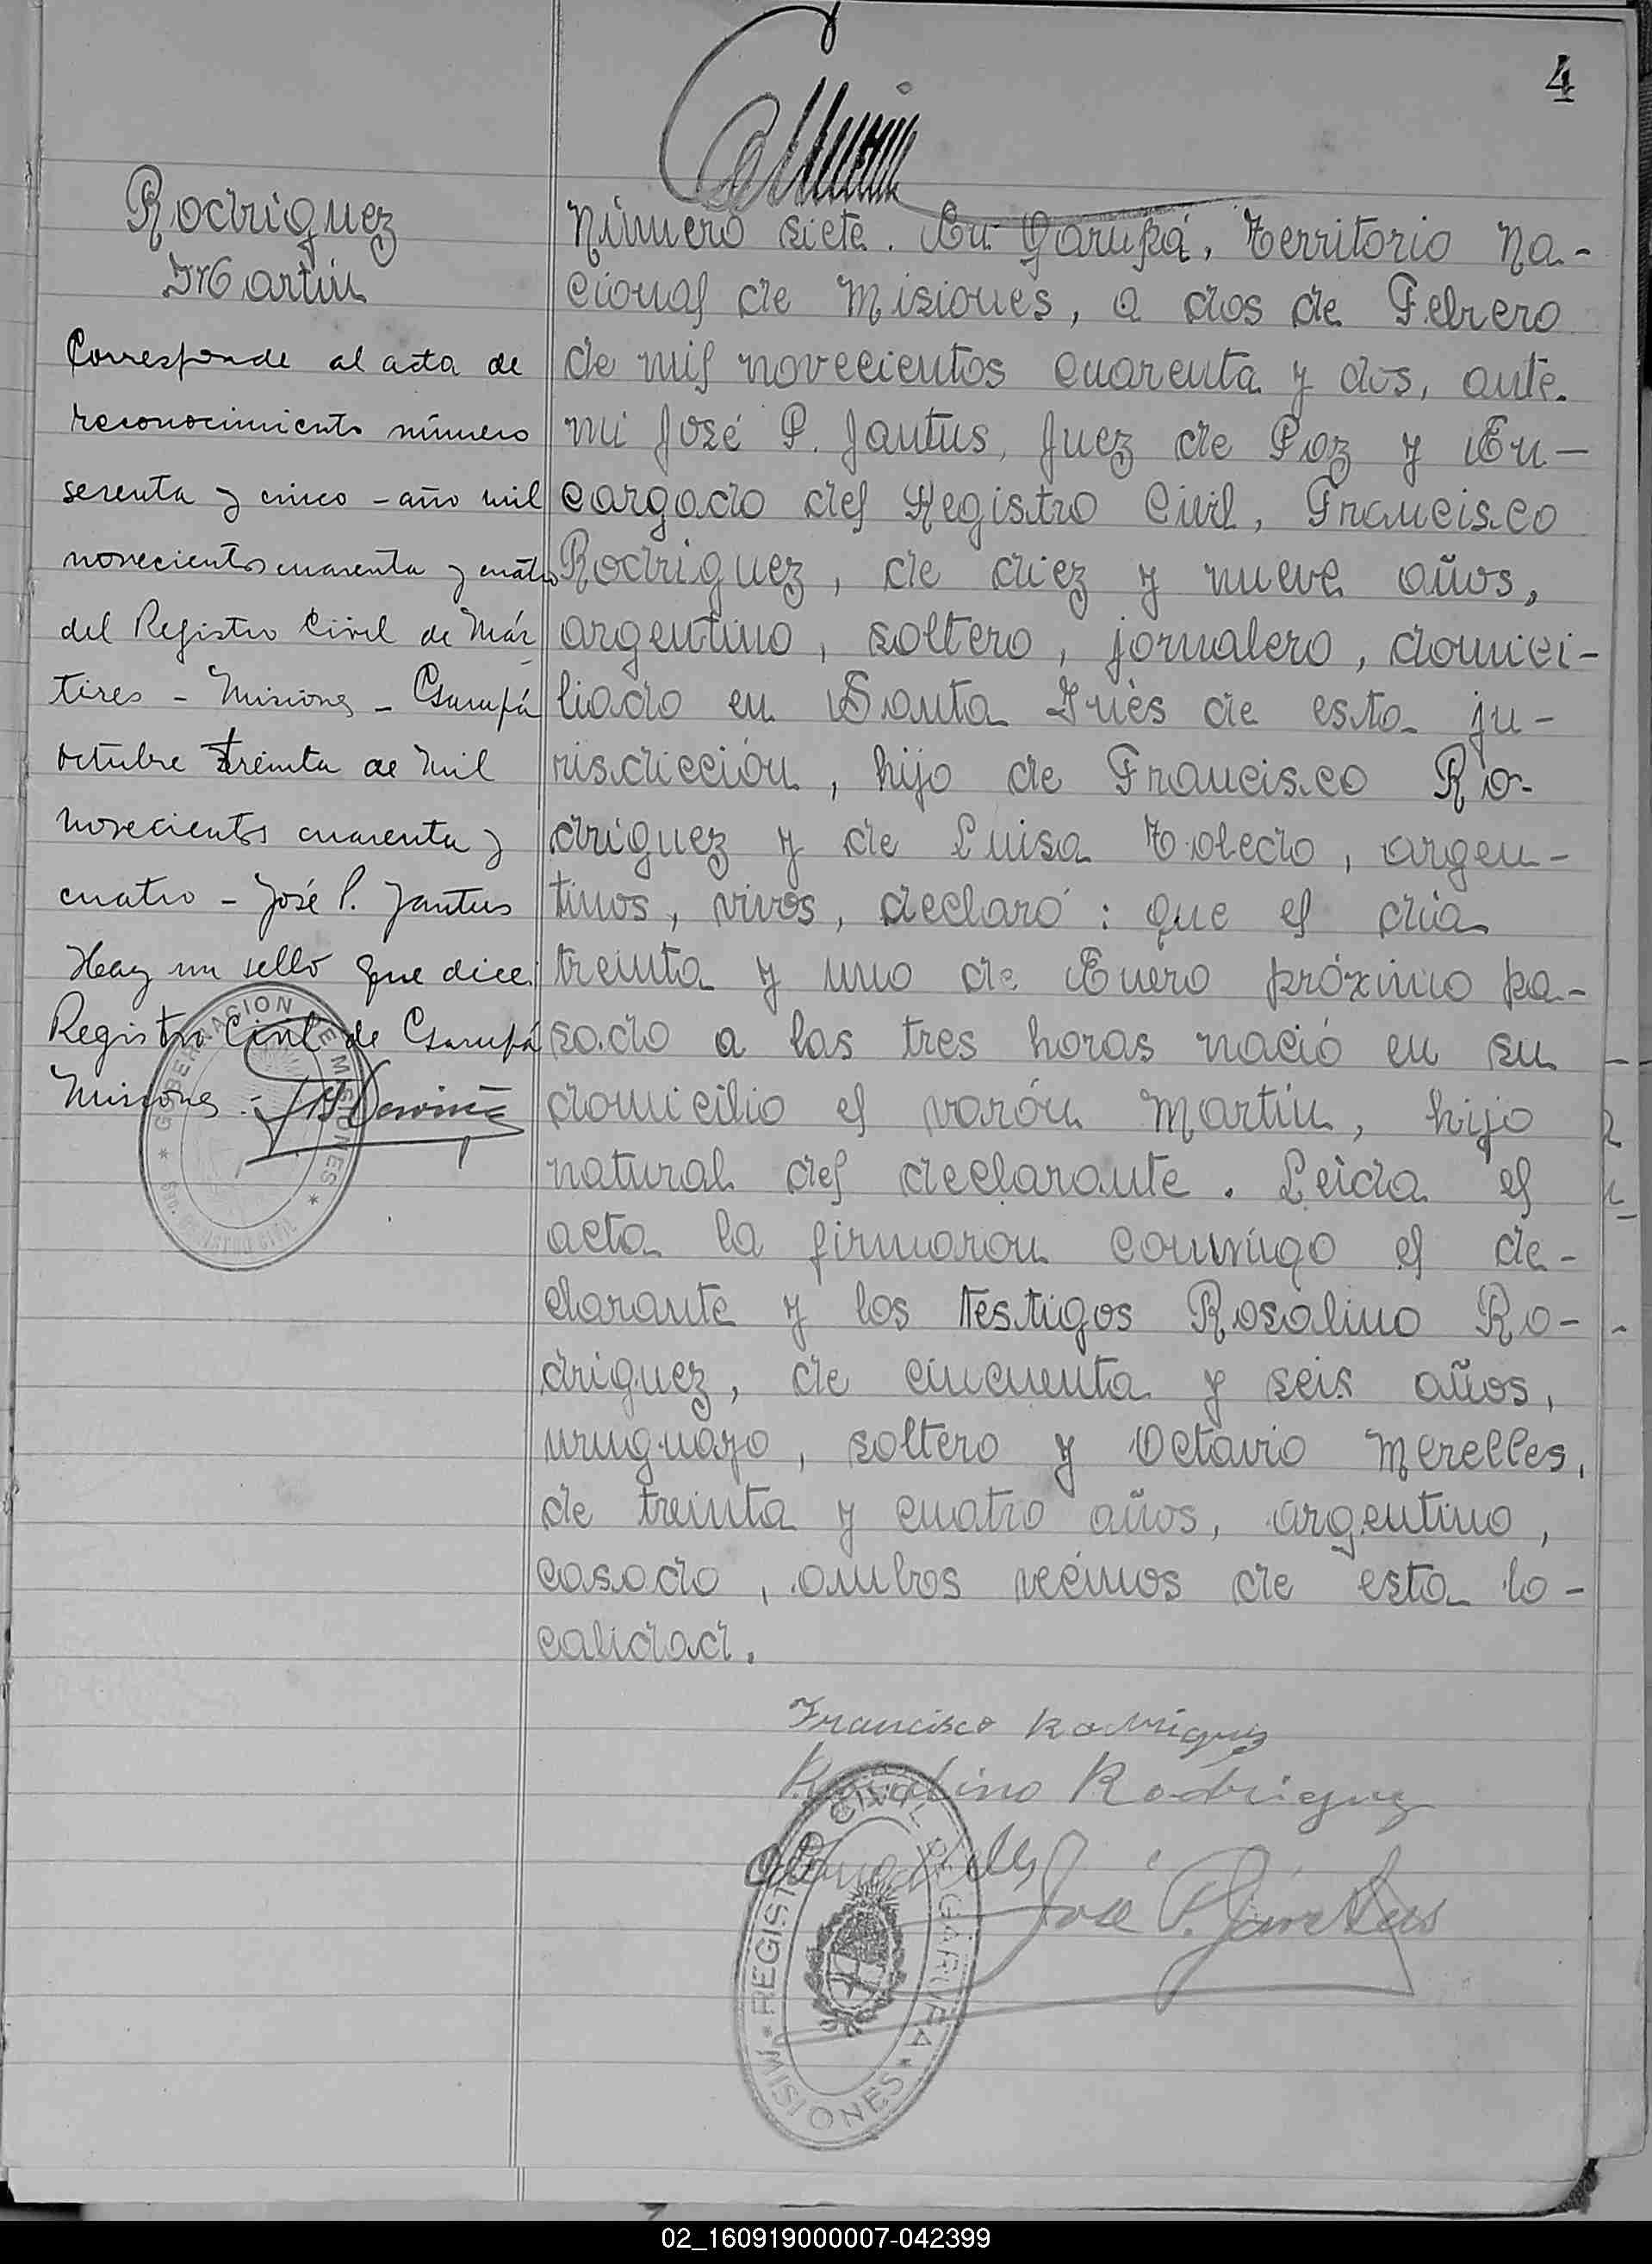 4
Rodriguez
Martin
Corresponde al acta de
reconocimiento número
sesenta y cinco - año mil
novecientos cuarenta y cuatro
del Registro Civil de Már
tires - Misiones - Garupá
octubre treinta de mil
novecientos cuarenta y
cuatro - José P. Jantus
Hay un sello que dice:
Registro Civil de Garupá
Misiones.-
GOBERNACION DE MISIONES
REGISTRO CIVIL
Número siete. En Garupá, Territorio Na-
cional de Misiones, a dos de Febrero
de mil novecientos cuarenta y dos, ante
mi José P. Jantus, Juez de Paz y En-
cargado del Registro Civil, Francisco
Rodriguez, de diez y nueve años,
argentino, soltero, jornalero, domici-
liado en Santa Inés de esta ju-
risdicción, hijo de Francisco Ro-
driguez y de Luisa Toledo, argen-
tinos, vivos, declaró: que el dia
treinta y uno de Enero próximo pa-
sado a las tres horas nació en su
domicilio el varón Martin, hijo
natural del declarante. Leida el
acta la firmaron conmigo el de-
clarante y los testigos Rosalino Ro-
driguez, de cincuenta y seis años,
uruguayo, soltero y Octavio Merelles,
de treinta y cuatro años, argentino,
casado, ambos vecinos de esta lo-
calidad.
Francisco Rodriguez
Rosalino Rodriguez
José P. Jantus
REGISTRO CIVIL DE GARUPA
MISIONES
02_160919000007-042399